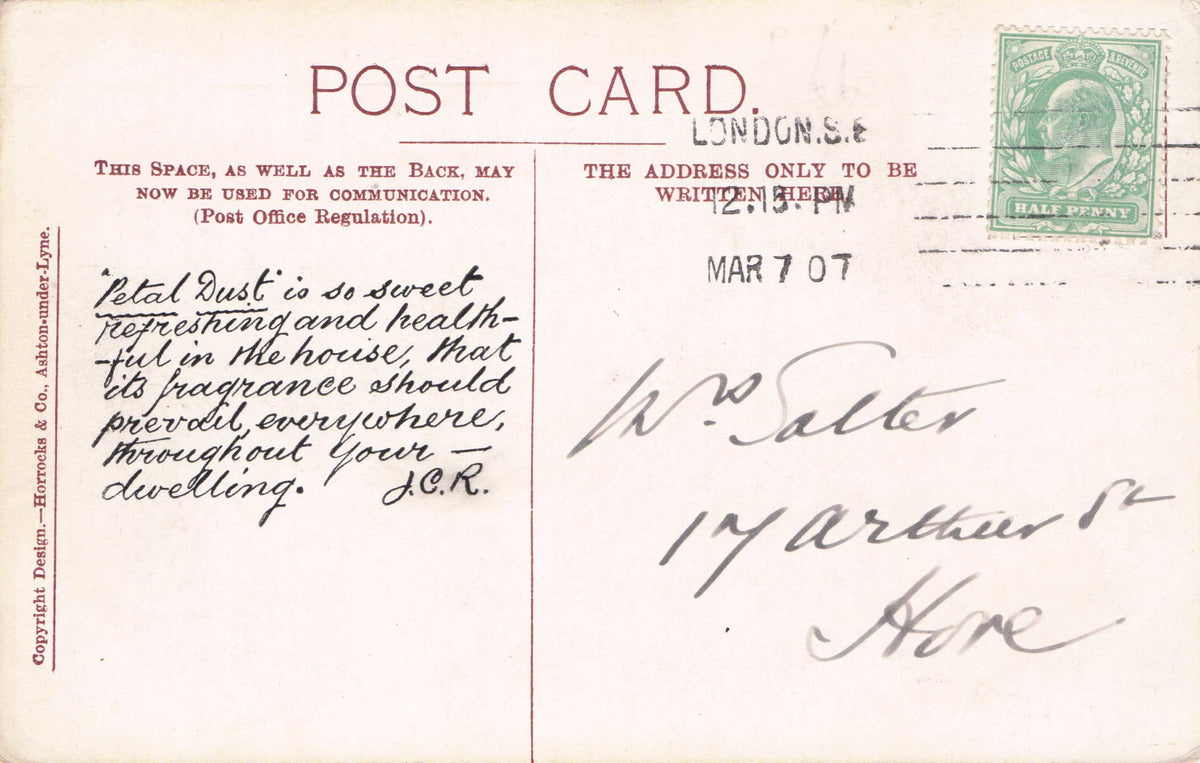 POST CARD.
LONDON.S.E
12.15. PM
MAR 7 07
POSTAGE & REVENUE
HALF PENNY
THIS SPACE, AS WELL AS THE BACK, MAY
NOW BE USED FOR COMMUNICATION.
(Post Office Regulation).
THE ADDRESS ONLY TO BE
WRITTEN HERE.
Copyright Design.—Horrocks & Co., Ashton-under-Lyne.
"Petal Dust" is so sweet
refreshing and health-
-ful in the house, that
its fragrance should
prevail, everywhere,
throughout your —
dwelling. J.C.R.
Mrs. Salter
17 Arthur St
Hove